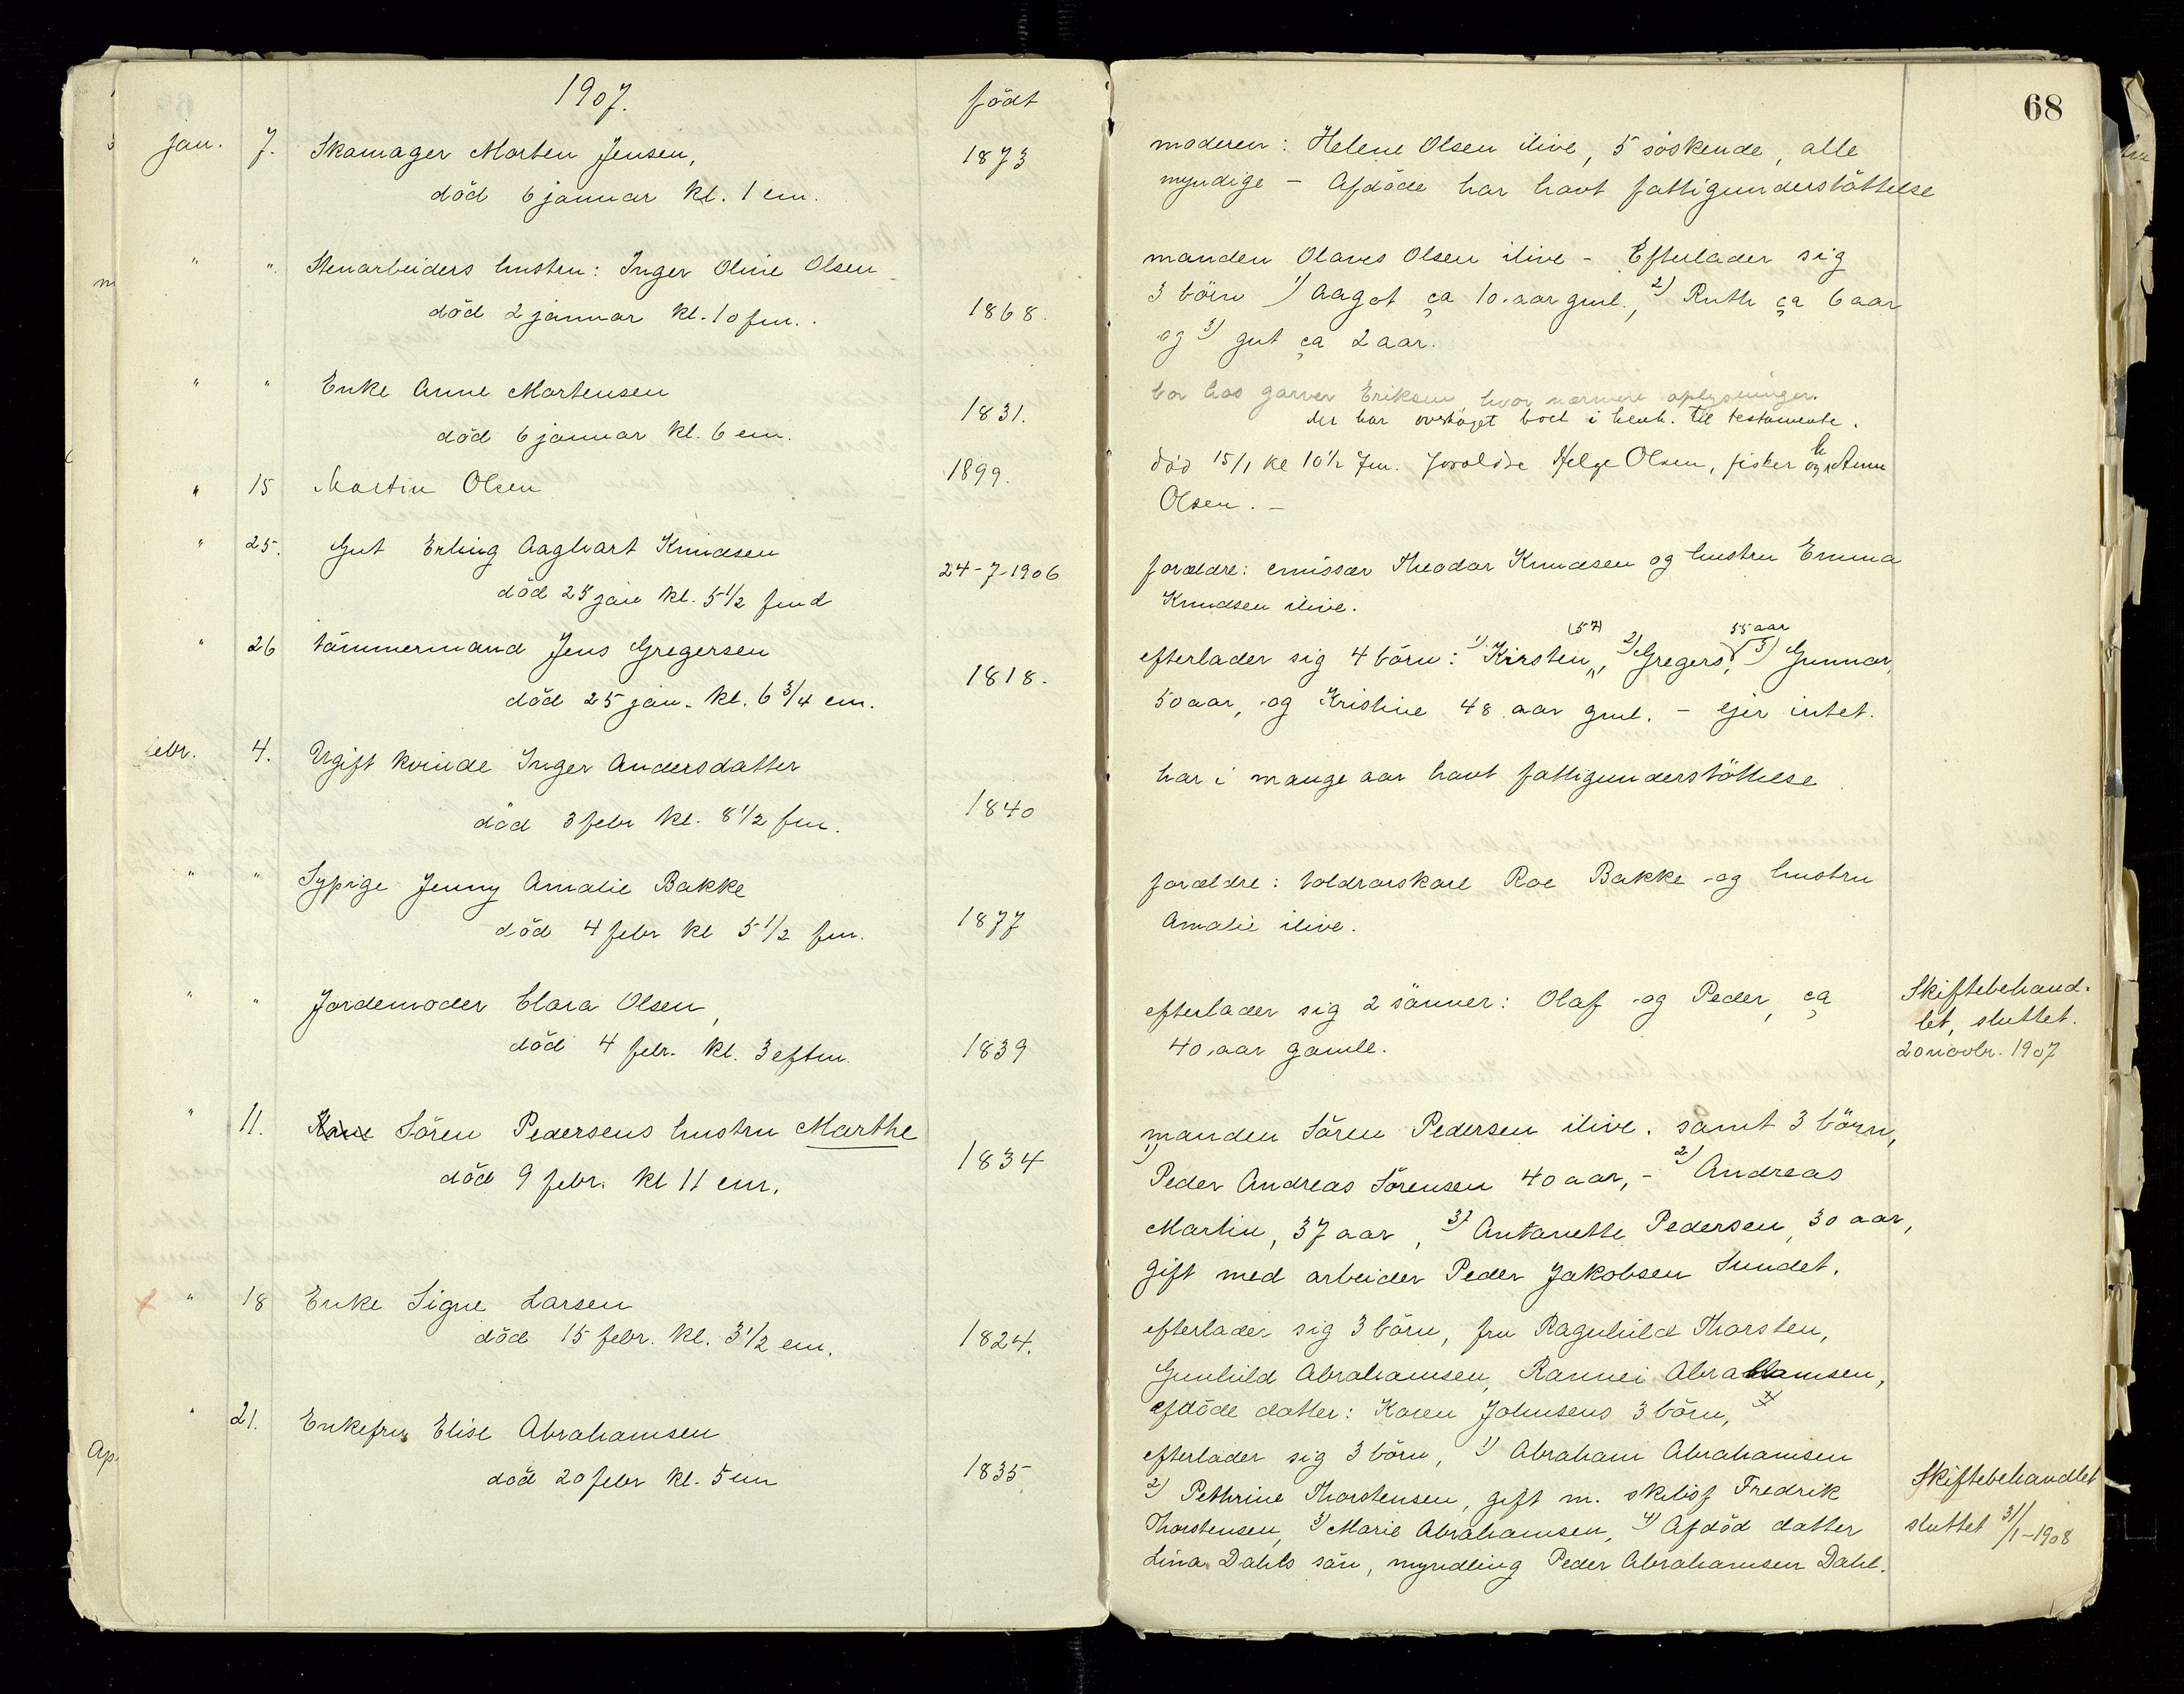 1907.
født
jan. 7. Skomager Morten Jensen,
død 6 januar kl. 1 em.
1873
" ". Stenarbeiders hustru: Inger Oline Olsen
død 2 januar kl. 10 fm.
1868.
" " Enke Anne Mortensen
død 6 januar kl. 6 em.
1831.
" 15 Martin Olsen
1899.
" 25. Gut Erling Aaghart Knudsen
død 25 jan kl. 5 1/2 fmd
24-7-1906
" 26 tömmermand Jens Gregersen
død 25 jan. kl. 6 3/4 em.
1818.
febr. 4. Ugift kvinde Inger Andersdatter
död 3 febr kl. 8 1/2 fm.
1840
" " Sypige Jenny Amalie Bakke
död 4 febr kl 5 1/2 fm.
1877
" " Jordemoder Clara Olsen,
död 4 febr. kl. 3 eftm.
1839
" 11. Kone Sören Pedersens hustru Marthe
död 9 febr. kl 11 em.
1834
" 18 Enke Signe Larsen
död 15 febr. kl. 3 1/2 em.
1824.
" 21. Enkefru Elise Abrahamsen
död 20 febr kl. 5 em
1835.
Ap.
68
moderen: Helene Olsen ilive, 5 söskende, alle
myndige - Afdöde har havt fattigunderstöttelse
manden Olaves Olsen ilive - Efterlader sig
3 börn 1) Aagot ca 10 aar gml., 2) Ruth ca 6 aar
og 3) gut ca 2 aar.
bor hos garver Eriksen hvor nærmere oplysninger.
der har overtaget boet i henh. til testamente.
död 15/1 kl 10 1/2 fm. forældre Helge Olsen, fisker og h Anna
Olsen. -
forældre: emissær Theodor Knudsen og hustru Emma
Knudsen ilive.
efterlader sig 4 börn: 1) Kirsten (57), 2) Gregers 55 aar, 3) Gunnar,
50 aar, og Kristine 48 aar gml. - ejer intet.
har i mange aar havt fattigunderstöttelse
forældre: toldrorskarl Roe Bakke og hustru
Amalie ilive.
efterlader sig 2 sönner: Olaf og Peder, ca
40 aar gamle.
Skiftebehand-
let, sluttet.
20 novbr. 1907
manden Sören Pedersen ilive. samt 3 börn,
1) Peder Andreas Sörensen 40 aar, - 2) Andreas
Martin, 37 aar, 3) Antonette Pedersen, 30 aar,
gift med arbeider Peder Jakobsen Sundet.
efterlader sig 3 börn, fru Ragnhild Thorsten,
Gunhild Abrahamsen, Rannei Abrahamsen,
afdöde datter: Karen Johnsens 3 börn,
efterlader sig 3 börn, 1) Abraham Abrahamsen
2) Pethrine Thorstensen, gift m. skibsf Fredrik
Thorstensen, 3) Marie Abrahamsen, 4) Afdöd datter
Lina Dahls sön, myndling Peder Abrahamsen Dahl.
Skiftebehandlet
sluttet 31/1-1908